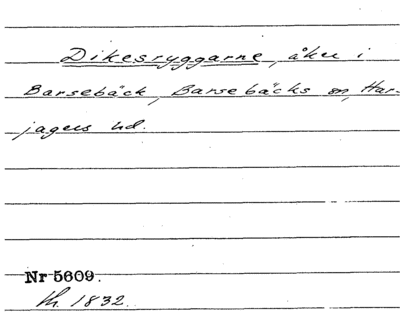 Dikesryggarne, åker i
Barsebäck, Barsebäcks sn, Har-
jagers hd.
Nr 5609.
th. 1832.